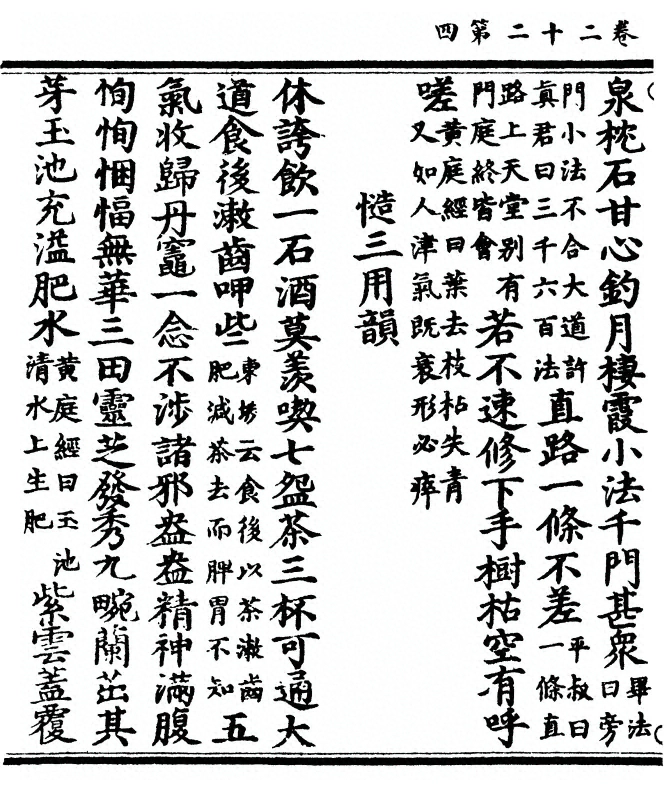 卷二十二第四
泉枕石甘心釣月棲霞小法千門甚衆畢法曰旁
門小法不合大道許真君曰三千六百法直路一條不差平叔曰一條直
路上天堂别有門庭終皆會若不速修下手樹枯空有呼
嗟黃庭經曰葉去枝枯失青又如人津氣既衰形必瘁
慥三用韻
休誇飲一石酒莫羨喫七盌茶三杯可通大
道食後漱齒呷些東坡云食後以茶漱齒肥減茶去而脾胃不知五
氣收歸丹竈一念不涉諸邪盎盎精神滿腹
恂恂悃愊無華三田靈芝發秀九畹蘭茁其
芽玉池充溢肥水黃庭經曰玉池清水上生肥紫雲蓋覆